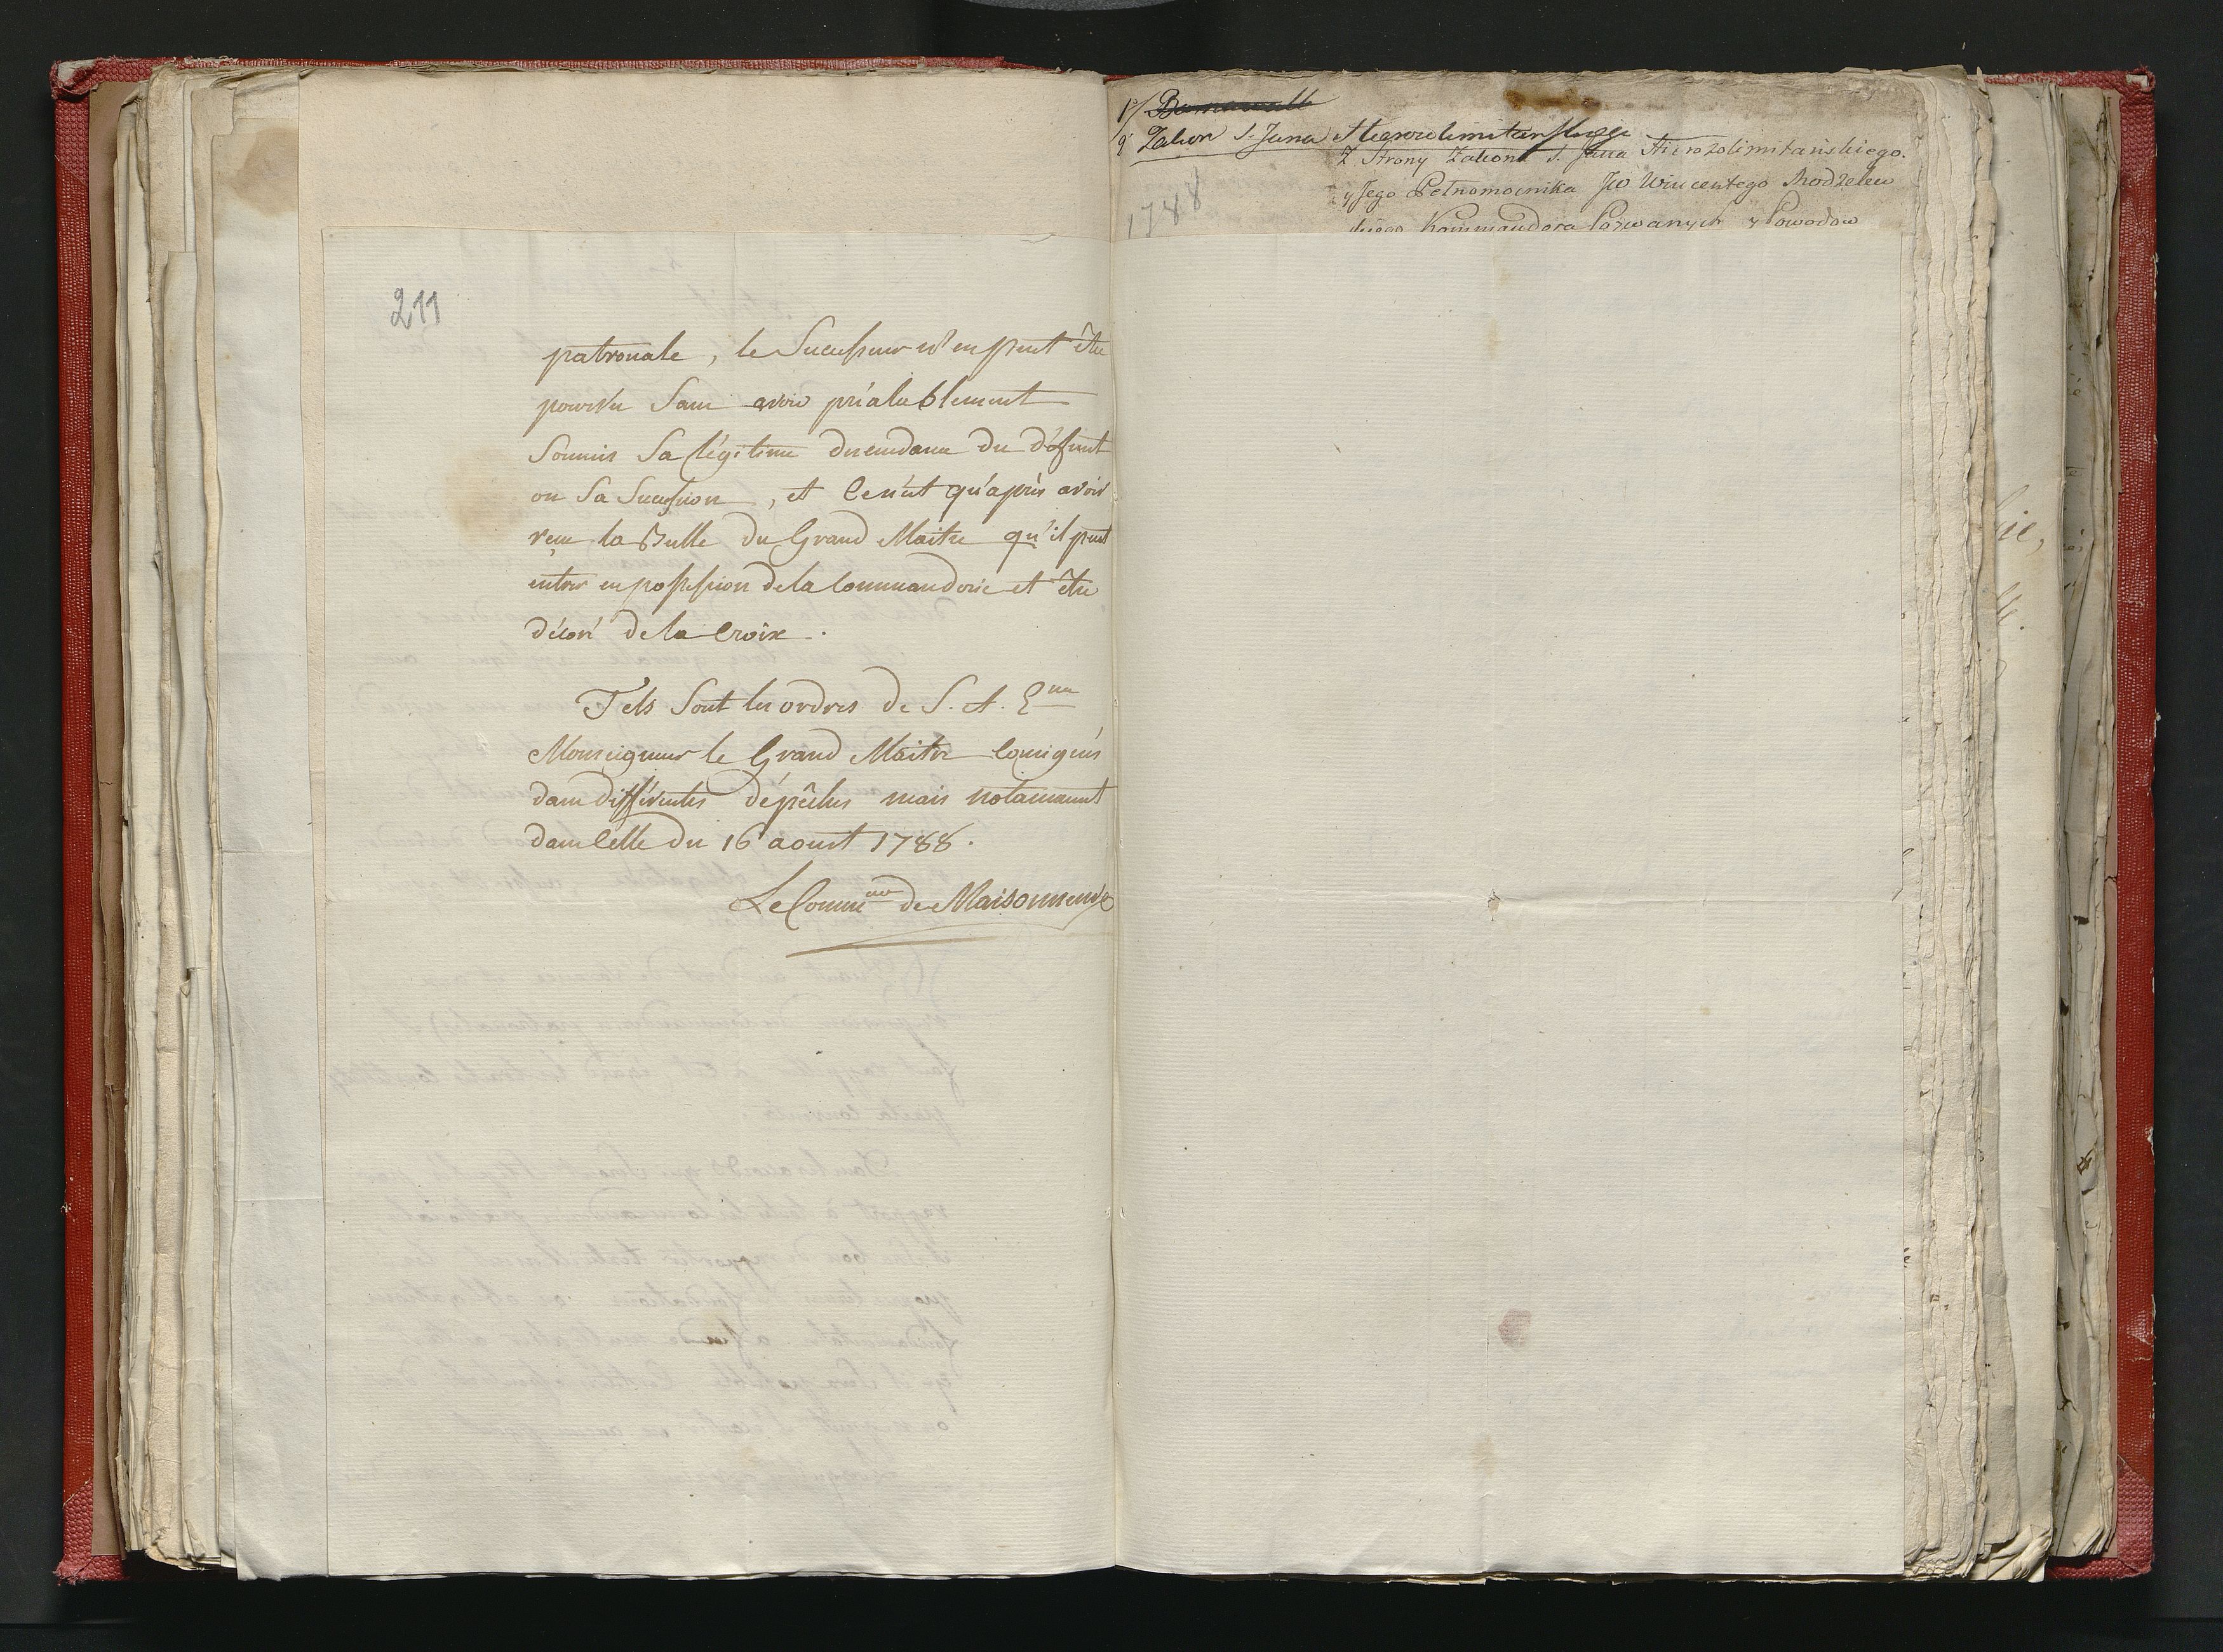 211
patronale, le Successeur n'en peut être
pourvu Sans avoir préalablement
Soumis Sa légitime descendance du défunt
ou Sa Succession, et Ce n'est qu'après avoir
reçu la Bulle du Grand Maitre qu'il peut
entrer en possession de la Commanderie et être
décoré de la Croix.
Tels Sont les ordres de S. A. E.me
Monseigneur le Grand Maitre Consignés
dans différentes dépêches mais notamment
dans Celle du 16 aoust 1788.
Le Comm.eur de Maisonneuve
Zakon S. Jana Hierozolimitanskiego
Z Strony Zakonu S. Jana Hierozolimitańskiego.
y Jego Pełnomocnika JW Wincentego Modzelew
skiego Kommandora Pozwanych y Powodow
1788